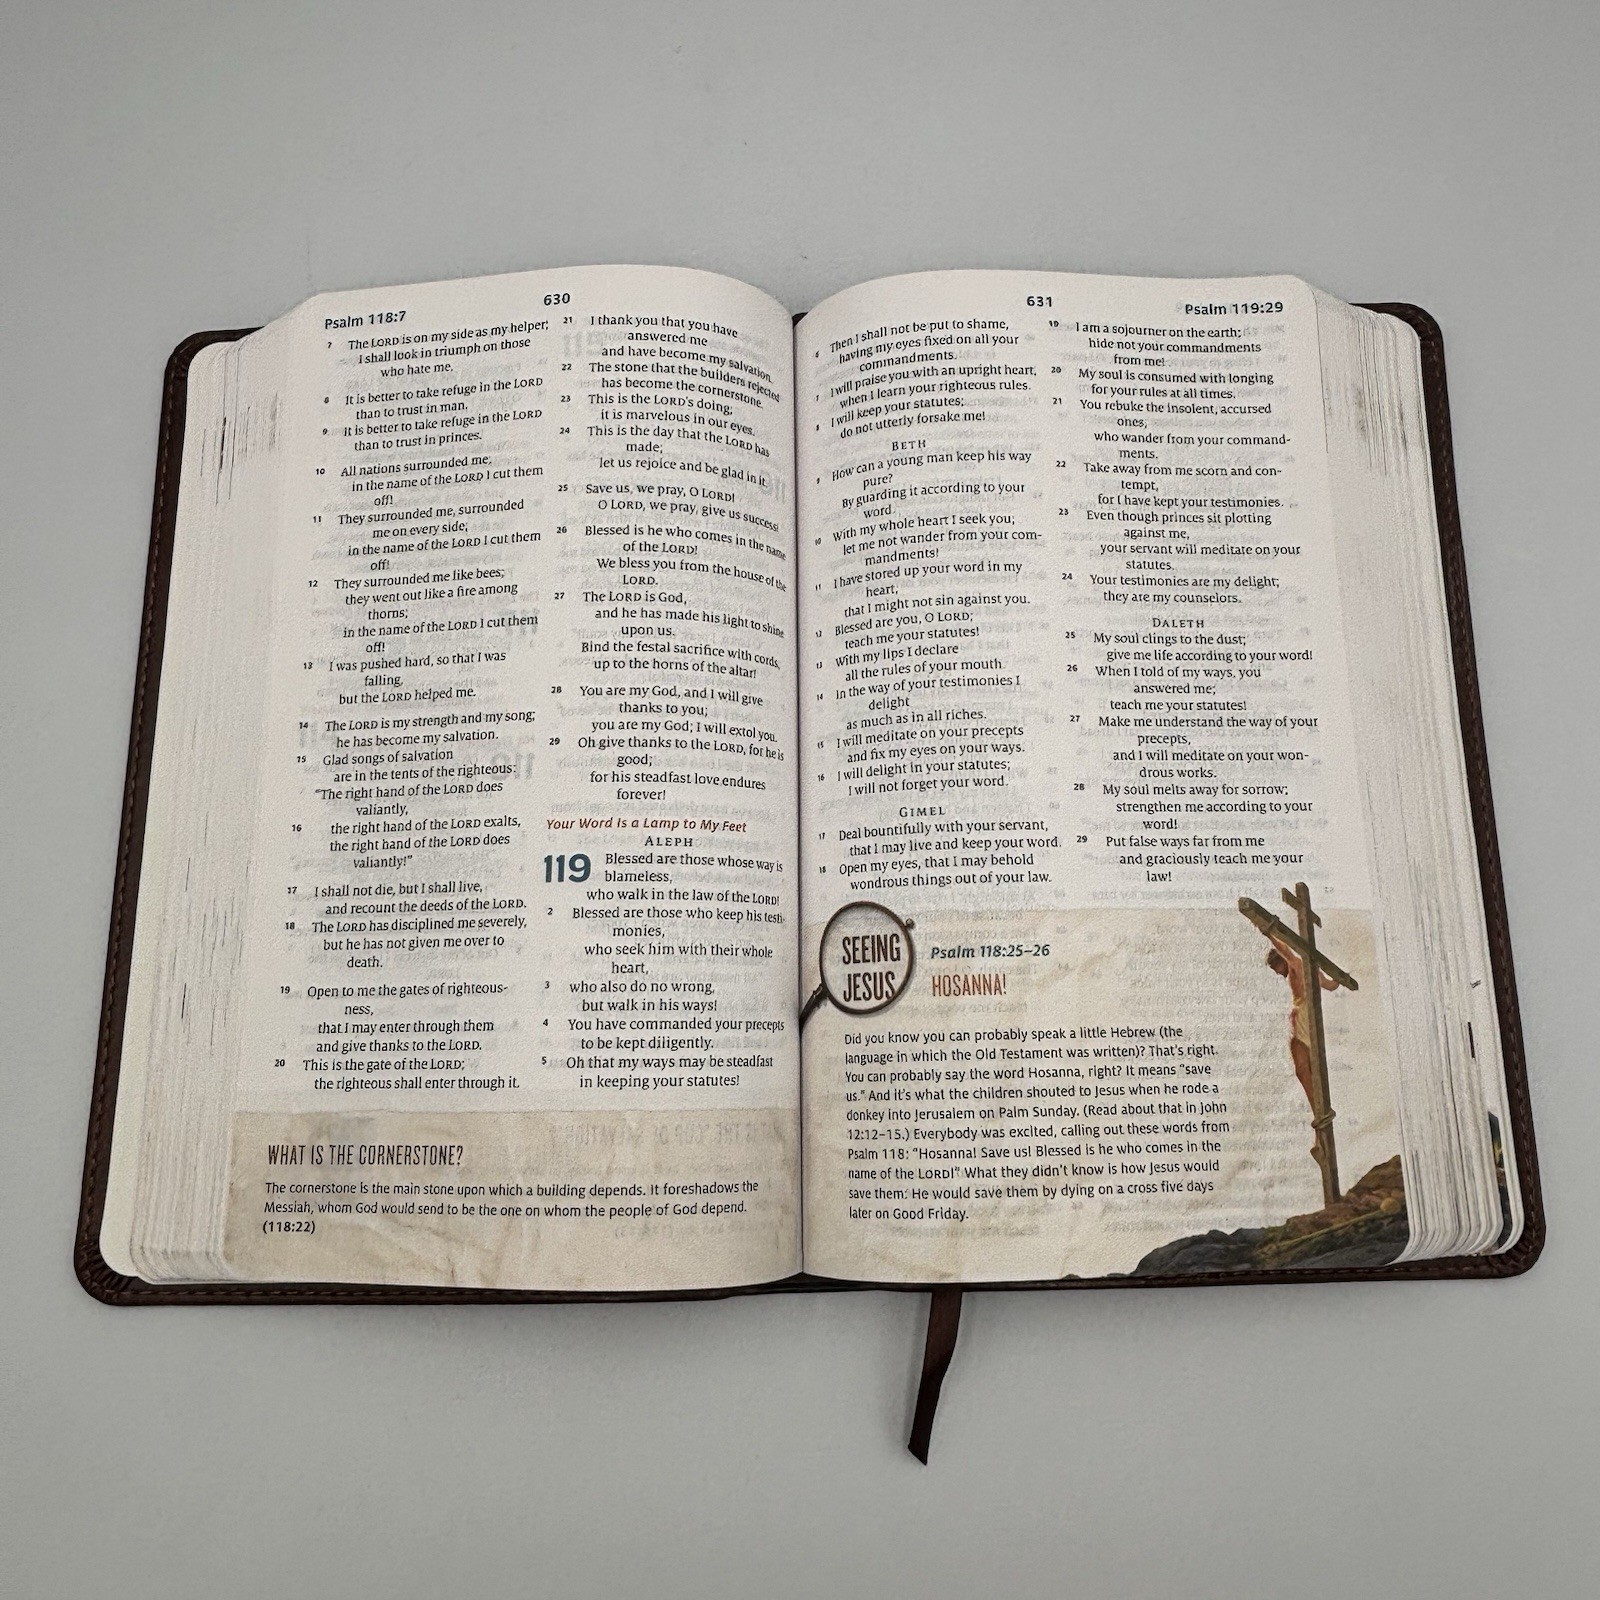 630
Psalm 118:7
7 The LORD is on my side as my helper;
I shall look in triumph on those
who hate me.
8 It is better to take refuge in the LORD
than to trust in man.
9 It is better to take refuge in the LORD
than to trust in princes.
10 All nations surrounded me;
in the name of the LORD I cut them
off!
11 They surrounded me, surrounded
me on every side;
in the name of the LORD I cut them
off!
12 They surrounded me like bees;
they went out like a fire among
thorns;
in the name of the LORD I cut them
off!
13 I was pushed hard, so that I was
falling,
but the LORD helped me.
14 The LORD is my strength and my song;
he has become my salvation.
15 Glad songs of salvation
are in the tents of the righteous:
"The right hand of the LORD does
valiantly,
16 the right hand of the LORD exalts,
the right hand of the LORD does
valiantly!"
17 I shall not die, but I shall live,
and recount the deeds of the LORD.
18 The LORD has disciplined me severely,
but he has not given me over to
death.
19 Open to me the gates of righteous-
ness,
that I may enter through them
and give thanks to the LORD.
20 This is the gate of the LORD;
the righteous shall enter through it.
21 I thank you that you have
answered me
and have become my salvation.
22 The stone that the builders rejected
has become the cornerstone.
23 This is the LORD's doing;
it is marvelous in our eyes.
24 This is the day that the LORD has
made;
let us rejoice and be glad in it.
25 Save us, we pray, O LORD!
O LORD, we pray, give us success!
26 Blessed is he who comes in the name
of the LORD!
We bless you from the house of the
LORD.
27 The LORD is God,
and he has made his light to shine
upon us.
Bind the festal sacrifice with cords,
up to the horns of the altar!
28 You are my God, and I will give
thanks to you;
you are my God; I will extol you.
29 Oh give thanks to the LORD, for he is
good;
for his steadfast love endures
forever!
Your Word Is a Lamp to My Feet
ALEPH
119 Blessed are those whose way is
blameless,
who walk in the law of the LORD!
2 Blessed are those who keep his testi-
monies,
who seek him with their whole
heart,
3 who also do no wrong,
but walk in his ways!
4 You have commanded your precepts
to be kept diligently.
5 Oh that my ways may be steadfast
in keeping your statutes!
WHAT IS THE CORNERSTONE?
The cornerstone is the main stone upon which a building depends. It foreshadows the
Messiah, whom God would send to be the one on whom the people of God depend.
(118:22)
631
Psalm 119:29
6 Then I shall not be put to shame,
having my eyes fixed on all your
commandments.
7 I will praise you with an upright heart,
when I learn your righteous rules.
8 I will keep your statutes;
do not utterly forsake me!
BETH
9 How can a young man keep his way
pure?
By guarding it according to your
word.
10 With my whole heart I seek you;
let me not wander from your com-
mandments!
11 I have stored up your word in my
heart,
that I might not sin against you.
12 Blessed are you, O LORD;
teach me your statutes!
13 With my lips I declare
all the rules of your mouth.
14 In the way of your testimonies I
delight
as much as in all riches.
15 I will meditate on your precepts
and fix my eyes on your ways.
16 I will delight in your statutes;
I will not forget your word.
GIMEL
17 Deal bountifully with your servant,
that I may live and keep your word.
18 Open my eyes, that I may behold
wondrous things out of your law.
19 I am a sojourner on the earth;
hide not your commandments
from me!
20 My soul is consumed with longing
for your rules at all times.
21 You rebuke the insolent, accursed
ones,
who wander from your command-
ments.
22 Take away from me scorn and con-
tempt,
for I have kept your testimonies.
23 Even though princes sit plotting
against me,
your servant will meditate on your
statutes.
24 Your testimonies are my delight;
they are my counselors.
DALETH
25 My soul clings to the dust;
give me life according to your word!
26 When I told of my ways, you
answered me;
teach me your statutes!
27 Make me understand the way of your
precepts,
and I will meditate on your won-
drous works.
28 My soul melts away for sorrow;
strengthen me according to your
word!
29 Put false ways far from me
and graciously teach me your
law!
SEEING
JESUS
Psalm 118:25–26
HOSANNA!
Did you know you can probably speak a little Hebrew (the
language in which the Old Testament was written)? That's right.
You can probably say the word Hosanna, right? It means "save
us." And it's what the children shouted to Jesus when he rode a
donkey into Jerusalem on Palm Sunday. (Read about that in John
12:12–15.) Everybody was excited, calling out these words from
Psalm 118: "Hosanna! Save us! Blessed is he who comes in the
name of the LORD!" What they didn't know is how Jesus would
save them: He would save them by dying on a cross five days
later on Good Friday.